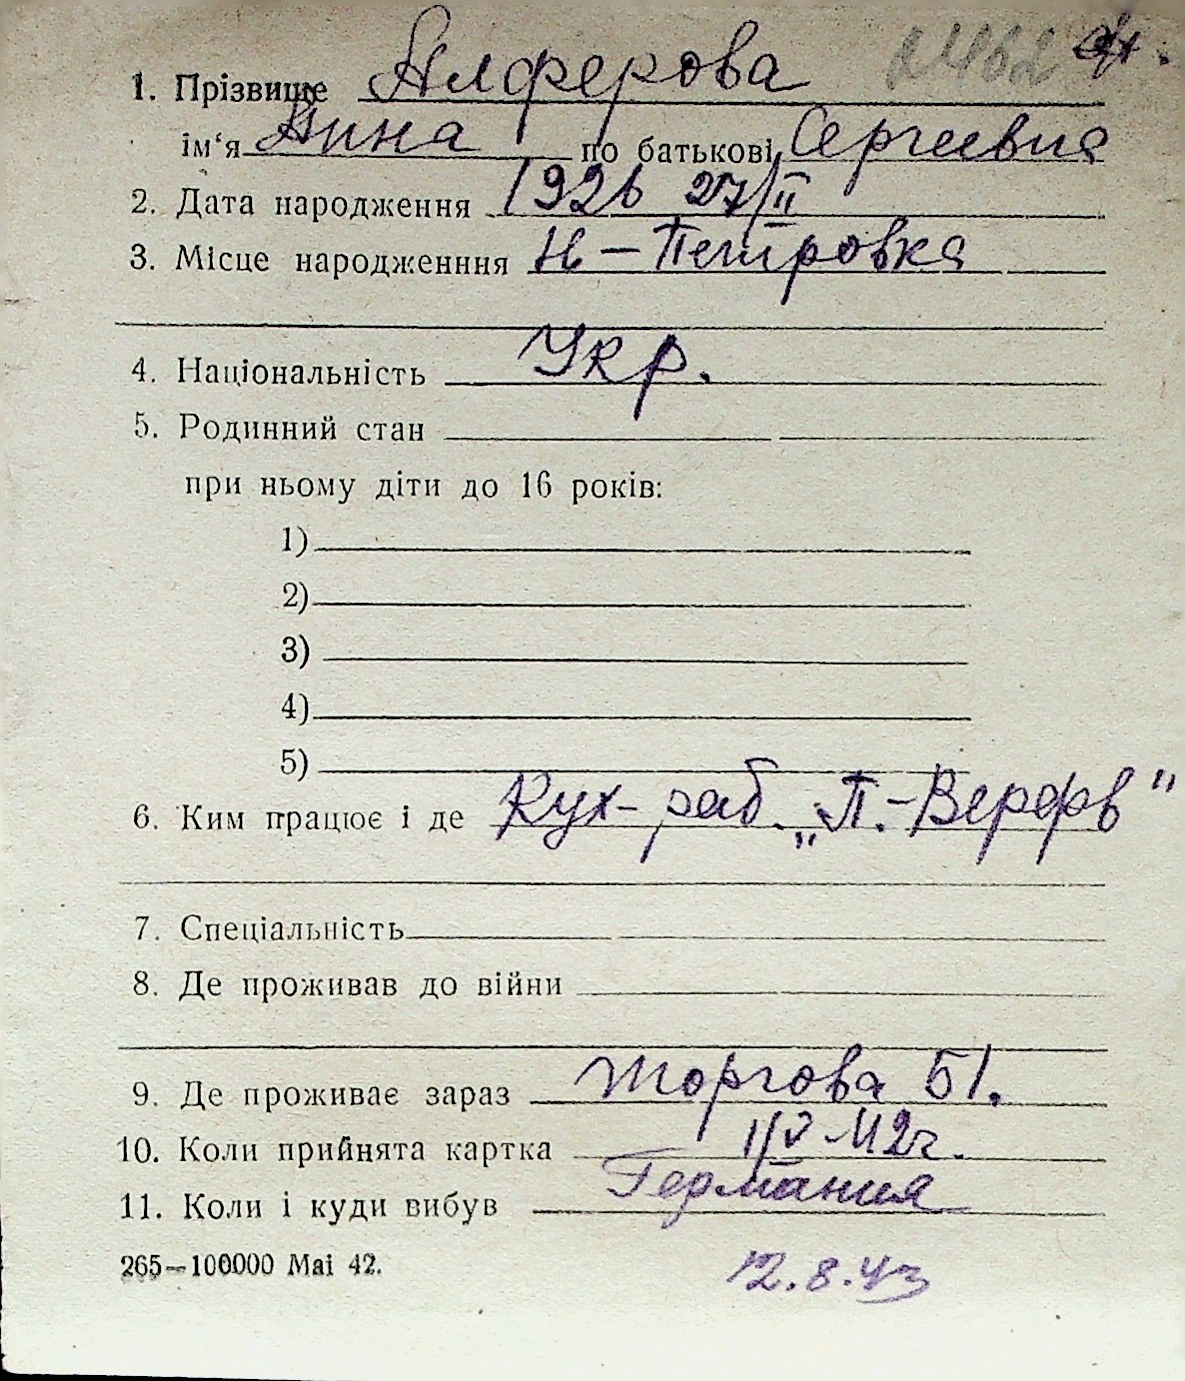 2462
1. Прізвище Алферова
ім‘я Анна по батькові Сергеевна
2. Дата народження 1926 27/II
3. Місце народженння Н-Петровка
4. Національність Укр.
5. Родинний стан
при ньому діти до 16 років:
1)
2)
3)
4)
5)
6. Ким працює і де Кух-раб. „П.-Верфь"
7. Спеціальність
8. Де проживав до війни
9. Де проживає зараз Торгова 51.
10. Коли прийнята картка 1/V-42г.
11. Коли і куди вибув Германия
265—100000 Mai 42.
12.8.43